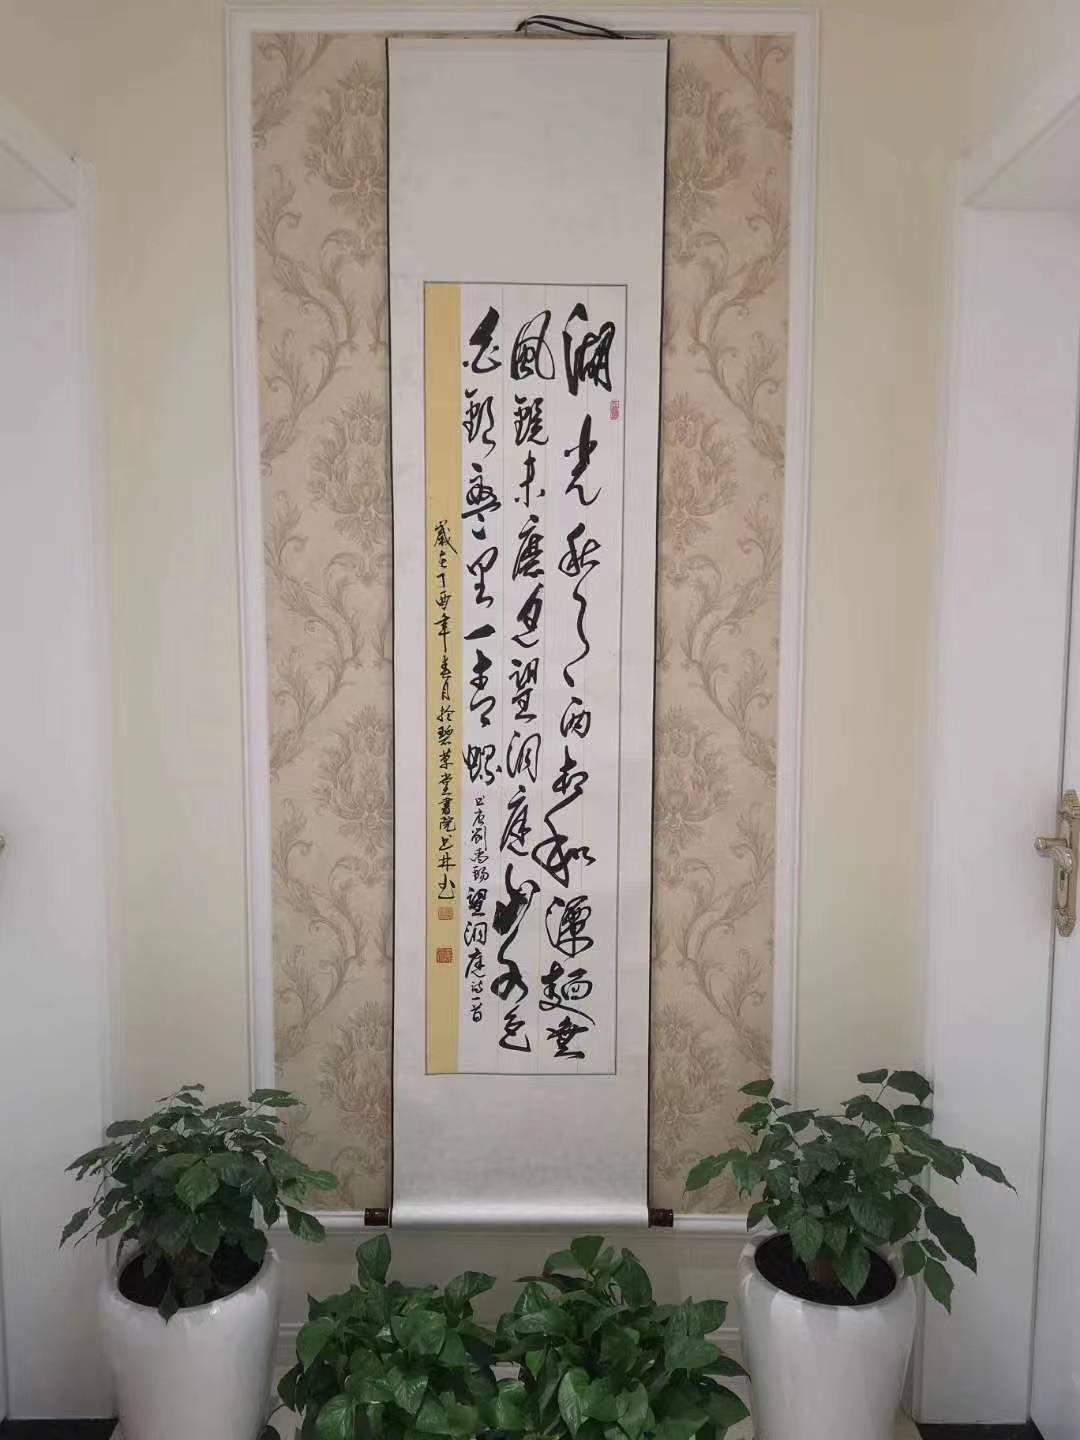 湖光秋月兩相和潭麵無
風鏡未磨遙望洞庭山水色
白銀盤里一青螺 書唐劉禹錫望洞庭詩一首
歲在丁酉年春月於碧草堂書院